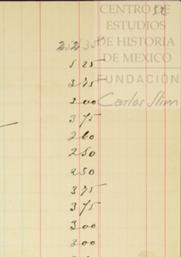 CENTRO DE
ESTUDIOS
DE HISTORIA
DE MEXICO
FUNDACIÓN
Carlos Slim
5 25
3 75
3 00
3 75
2 60
2 50
2 50
3 75
3 75
3 00
3 00